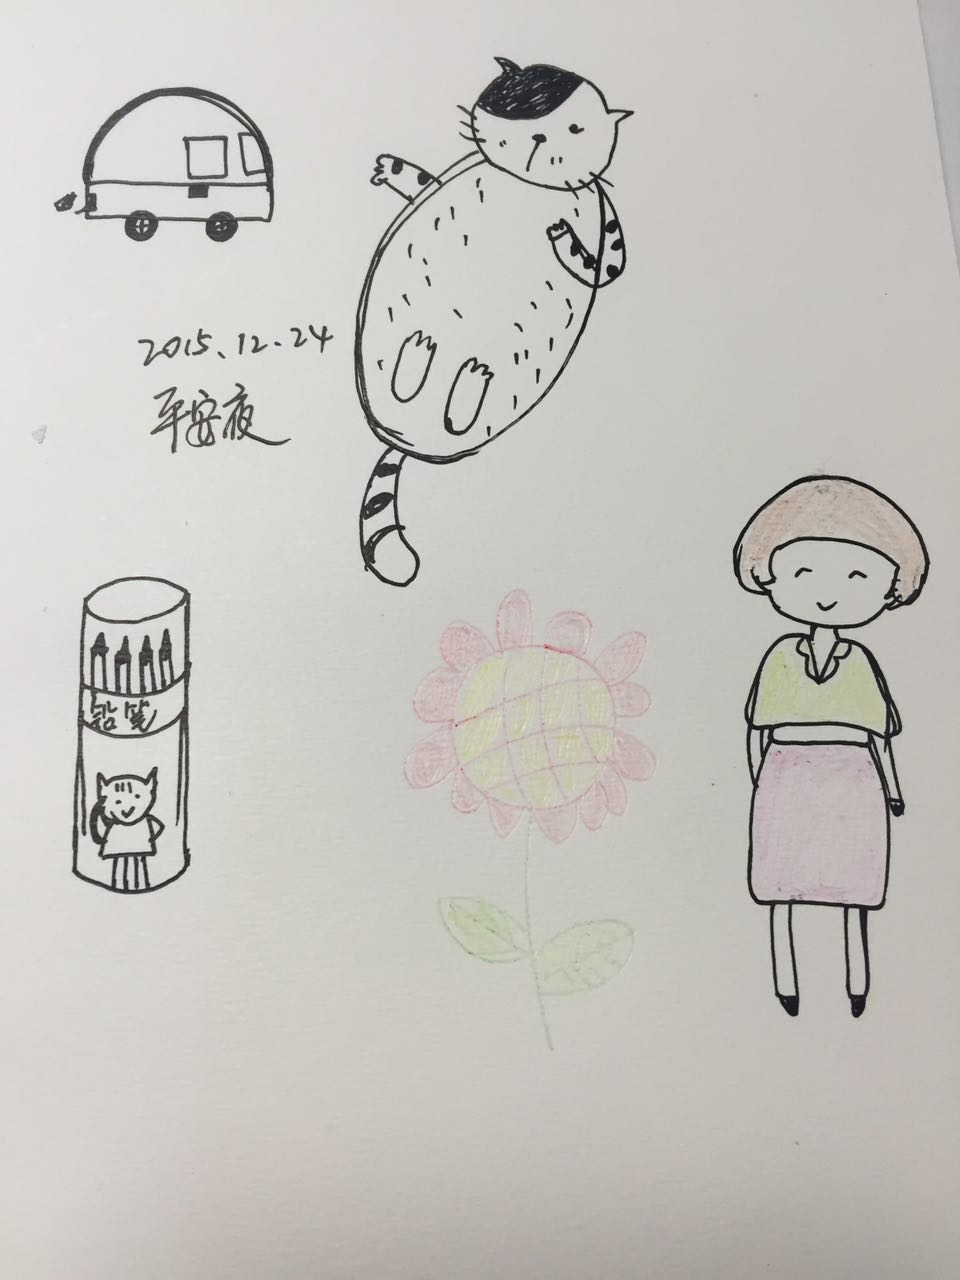 2015.12.24
平安夜
铅笔